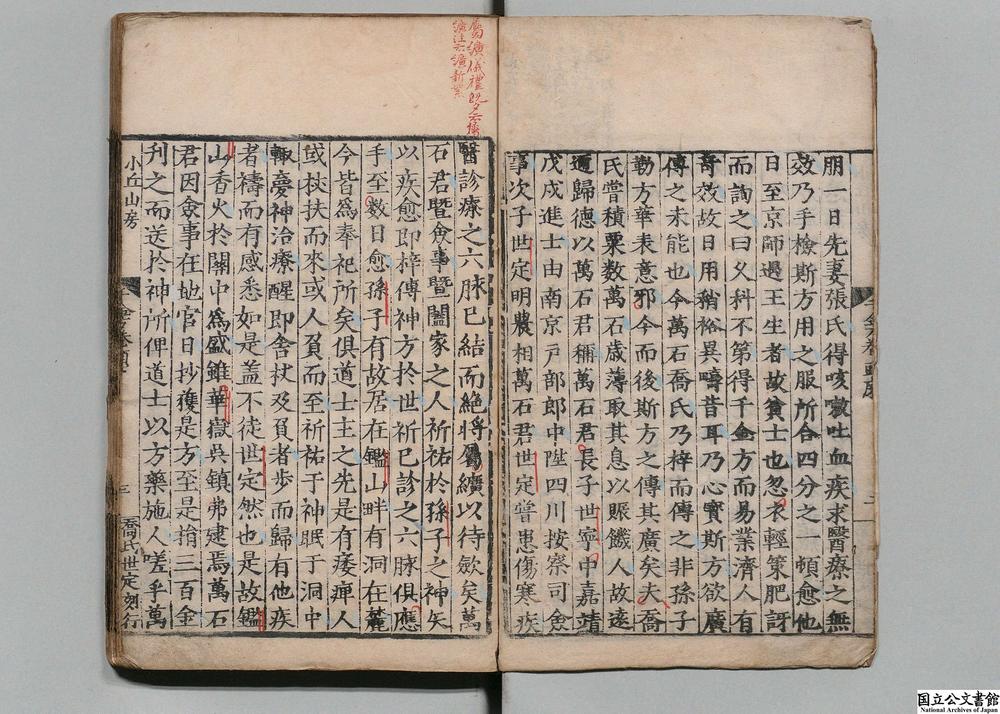 朋一日先妻張氏得咳嗽吐血疾求醫療之無
效乃手檢斯方用之服所合四分之一頓愈他
日至京師遇王生者故貧士也忽衣輕策肥訝
而詢之曰乂科不第得千金方而易業濟人有
奇效故日用稍裕異疇昔耳乃心寳斯方欲廣
傳之未能也今萬石喬氏乃梓而傳之非孫子
勒方華表意邪今而後斯方之傳其廣矣夫喬
氏嘗積粟数萬石歳薄取其息以賑饑人故逺
邇歸德以萬石君稱萬石君長子世寧中嘉靖
戊戌進士由南京户部郎中陞四川按察司僉
事次子世定明農相萬石君世定嘗患傷寒疾
二
屬纊儀禮既夕云
纊注云纊新絮
醫診療之六脉已結而絶將屬纊以待歛矣萬
石君暨僉事暨闔家之人祈祐於孫子之神矢
以疾愈即梓傳神方於世祈已診之六脉俱應
手至数日愈孫子有故居在鑑山畔有洞在麓
今皆爲奉祀所矣俱道士主之先是有痿痺人
或杖扶而來或人負而至祈祐于神眠于洞中
輙夢神治療醒即舍杖及負者歩而歸有他疾
者禱而有感悉如是盖不徒世定然也是故鑑
山香火於關中爲盛雖華嶽吳鎮弗逮焉萬石
君因僉事在地官日抄獲是方至是捐三百金
刋之而送於神所俾道士以方藥施人嗟乎萬
小丘山房
三
喬氏世定刻行
国立公文書館
National Archives of Japan